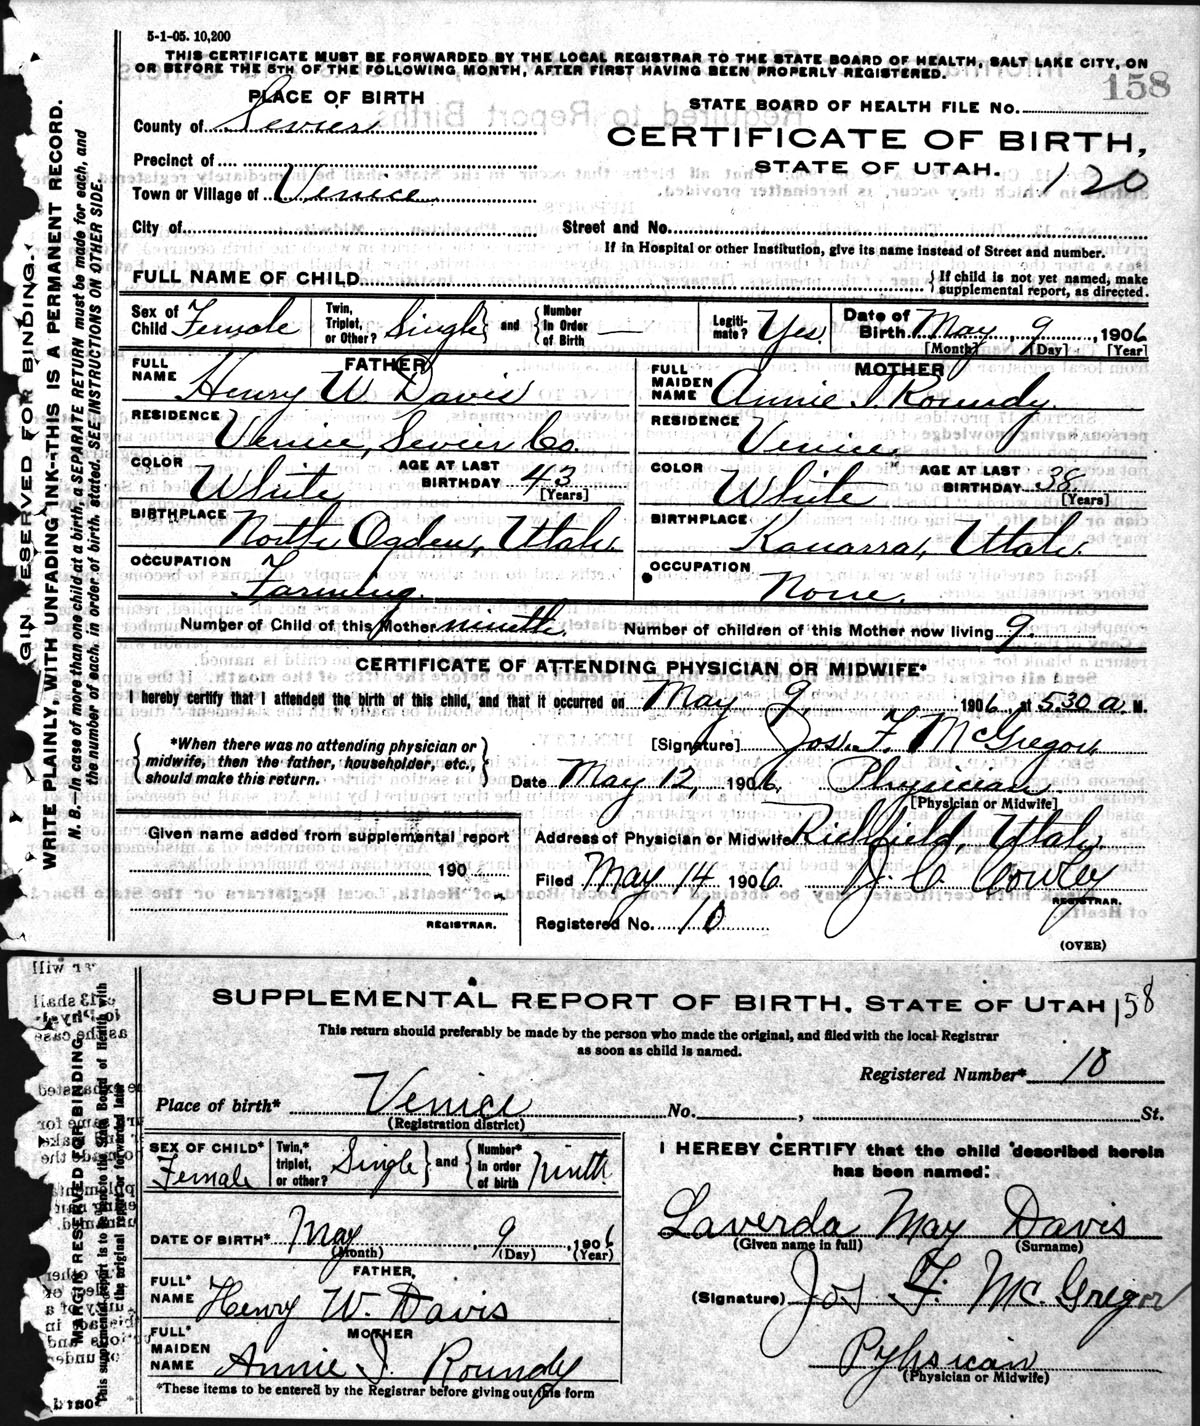 5-1-05. 10,200
THIS CERTIFICATE MUST BE FORWARDED BY THE LOCAL REGISTRAR TO THE STATE BOARD OF HEALTH, SALT LAKE CITY, ON
OR BEFORE THE 5TH OF THE FOLLOWING MONTH, AFTER FIRST HAVING BEEN PROPERLY REGISTERED.
158
PLACE OF BIRTH
STATE BOARD OF HEALTH FILE NO.
County of Sevier
CERTIFICATE OF BIRTH,
Precinct of
STATE OF UTAH.
120
Town or Village of Venice
City of Street and No.
If in Hospital or other Institution, give its name instead of Street and number.
FULL NAME OF CHILD {If child is not yet named, make
supplemental report, as directed.
Sex of Child Female Twin, Triplet, or Other? Single} and {Number in Order of Birth — Legitimate? Yes Date of Birth May 9, 1906
[Month] [Day] [Year]
FATHER
FULL NAME Henry W. Davis
RESIDENCE Venice, Sevier Co.
COLOR White AGE AT LAST BIRTHDAY 43 [Years]
BIRTHPLACE North Ogden, Utah.
OCCUPATION Farming.
MOTHER
FULL MAIDEN NAME Annie I. Roundy.
RESIDENCE Venice,
COLOR White AGE AT LAST BIRTHDAY 38 [Years]
BIRTHPLACE Kanarra, Utah.
OCCUPATION None.
Number of Child of this Mother ninth. Number of children of this Mother now living 9.
CERTIFICATE OF ATTENDING PHYSICIAN OR MIDWIFE*
I hereby certify that I attended the birth of this child, and that it occurred on May 9, 1906, at 5 30 a. M.
{*When there was no attending physician or
midwife, then the father, householder, etc.,
should make this return.}
[Signature] Jos. F. McGregor
Date May 12, 1906. Physician
[Physician or Midwife]
Given name added from supplemental report
190
REGISTRAR.
Address of Physician or Midwife Richfield, Utah.
Filed May 14 1906. J. C. Cowley
REGISTRAR.
Registered No. 10
(OVER)
MARGIN RESERVED FOR BINDING.
WRITE PLAINLY, WITH UNFADING INK--THIS IS A PERMANENT RECORD.
N. B.—In case of more than one child at a birth, a SEPARATE RETURN must be made for each, and
the number of each, in order of birth, stated. SEE INSTRUCTIONS ON OTHER SIDE.
SUPPLEMENTAL REPORT OF BIRTH, STATE OF UTAH 158
This return should preferably be made by the person who made the original, and filed with the local Registrar
as soon as child is named.
Registered Number* 10
Place of birth* Venice No. , St.
(Registration district)
SEX OF CHILD* Female Twin,* triplet, or other? Single} and {Number* in order of birth ninth
DATE OF BIRTH* May 9, 1906
(Month) (Day) (Year)
FATHER,
FULL* NAME Henry W. Davis
MOTHER
FULL* MAIDEN NAME Annie I. Roundy
*These items to be entered by the Registrar before giving out this form
I HEREBY CERTIFY that the child described herein
has been named:
Laverda May Davis
(Given name in full) (Surname)
(Signature) Jos F. McGregor
Pyhsician
(Physician or Midwife)
MARGIN RESERVED FOR BINDING